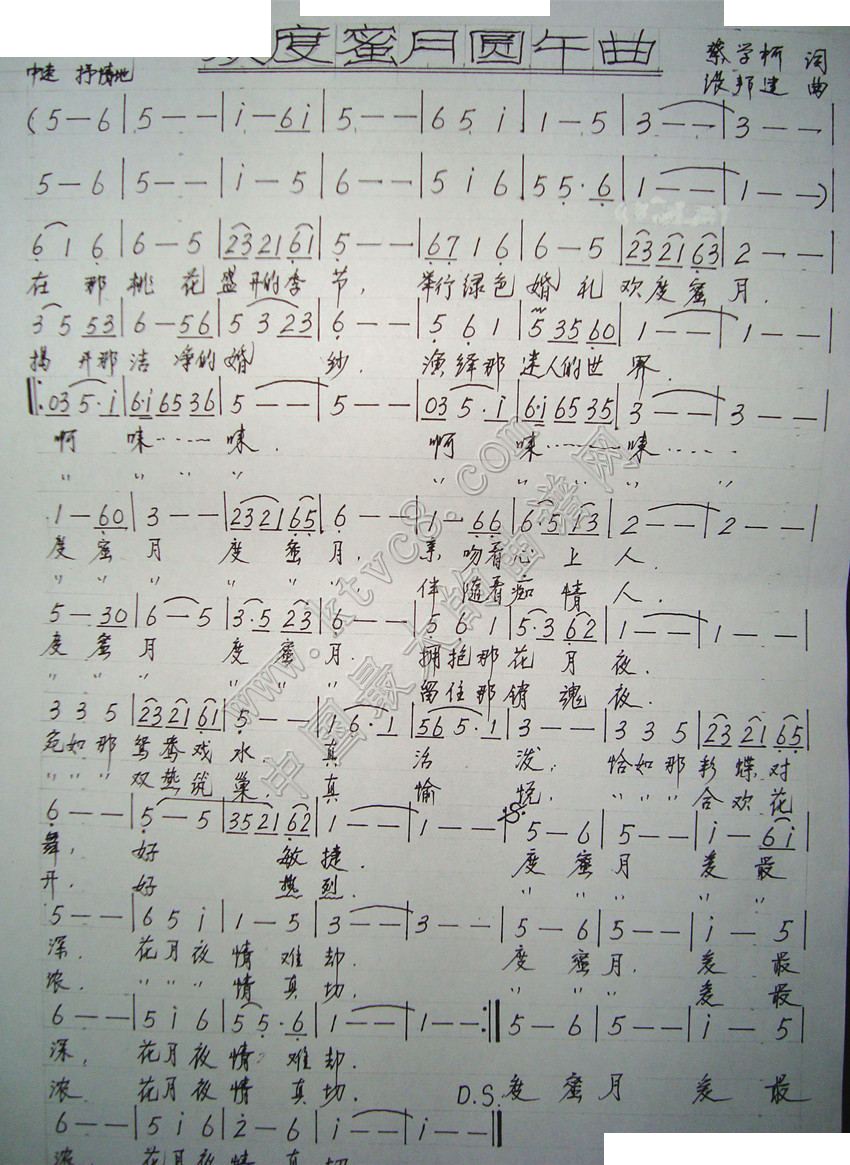 度蜜月圆午曲
中速 抒情地
蔡学柯 词
邦建 曲
(5–6|5––|i–6i|5––|65i|1–5|3––|3––|
5–6|5––|i–5|6––|5i6|55·6|1––|1––)
616|6–5|232161|5––|6716|6–5|232163|2––|
在那桃花盛开的季节, 举行绿色婚礼欢度蜜月.
3553|6–56|5323|6––|561|53560|1––|1––|
揭开那洁净的婚纱. 演绎那迷人的世界.
‖:035·i|6·i6536|5––|5––|035·i|6·i6535|3––|3––|
啊 唻……唻. 啊 唻……唻……
〃 〃 〃 〃 〃 〃 〃 〃 〃
1–60|3––|232165|6––|1–66|6·513|2––|2––|
度蜜月 度蜜月. 亲吻着心上人.
〃 〃 〃 〃 〃 〃. 伴随着痴情人.
5–30|6–5|3·523|6––|561|5·362|1––|1––|
度蜜月 度蜜月. 拥抱那花月夜.
〃 〃 〃 〃 〃 〃. 留住那销魂夜.
335|232161|5––|16·1|565·1|3––|335|232165|
宛如那鸳鸯戏水. 真活泼; 恰如那彩蝶对
〃 〃 〃 双燕筑巢. 真愉悦, 〃 〃 〃 合欢花
6––|5–5|352162|1––|1––|5–6|5––|i–6i|
舞, 好敏捷. 度蜜月 爱最
开. 好热烈. 〃 〃 〃 〃 〃
5––|65i|1–5|3––|3––|5–6|5––|i–5|
深. 花月夜情难却. 度蜜月. 爱最
浓. 〃 〃 〃 情真切. 〃 〃 〃. 爱最
6––|5i6|55·6|1––|1––:‖5–6|5––|i–5|
深, 花月夜情难却.
浓. 花月夜情真切. D.S. 度蜜月 爱最
6––|5i6|2–6|i––|i––‖
浓. 花月夜情真切
www.ktvc8.com
中国最大的曲谱网